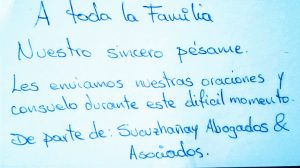 A toda la Familia
Nuestro sincero pésame.
Les enviamos nuestras oraciones y
consuelo durante este difícil momento.
De parte de: Sucuzhañay Abogados &
Asociados.